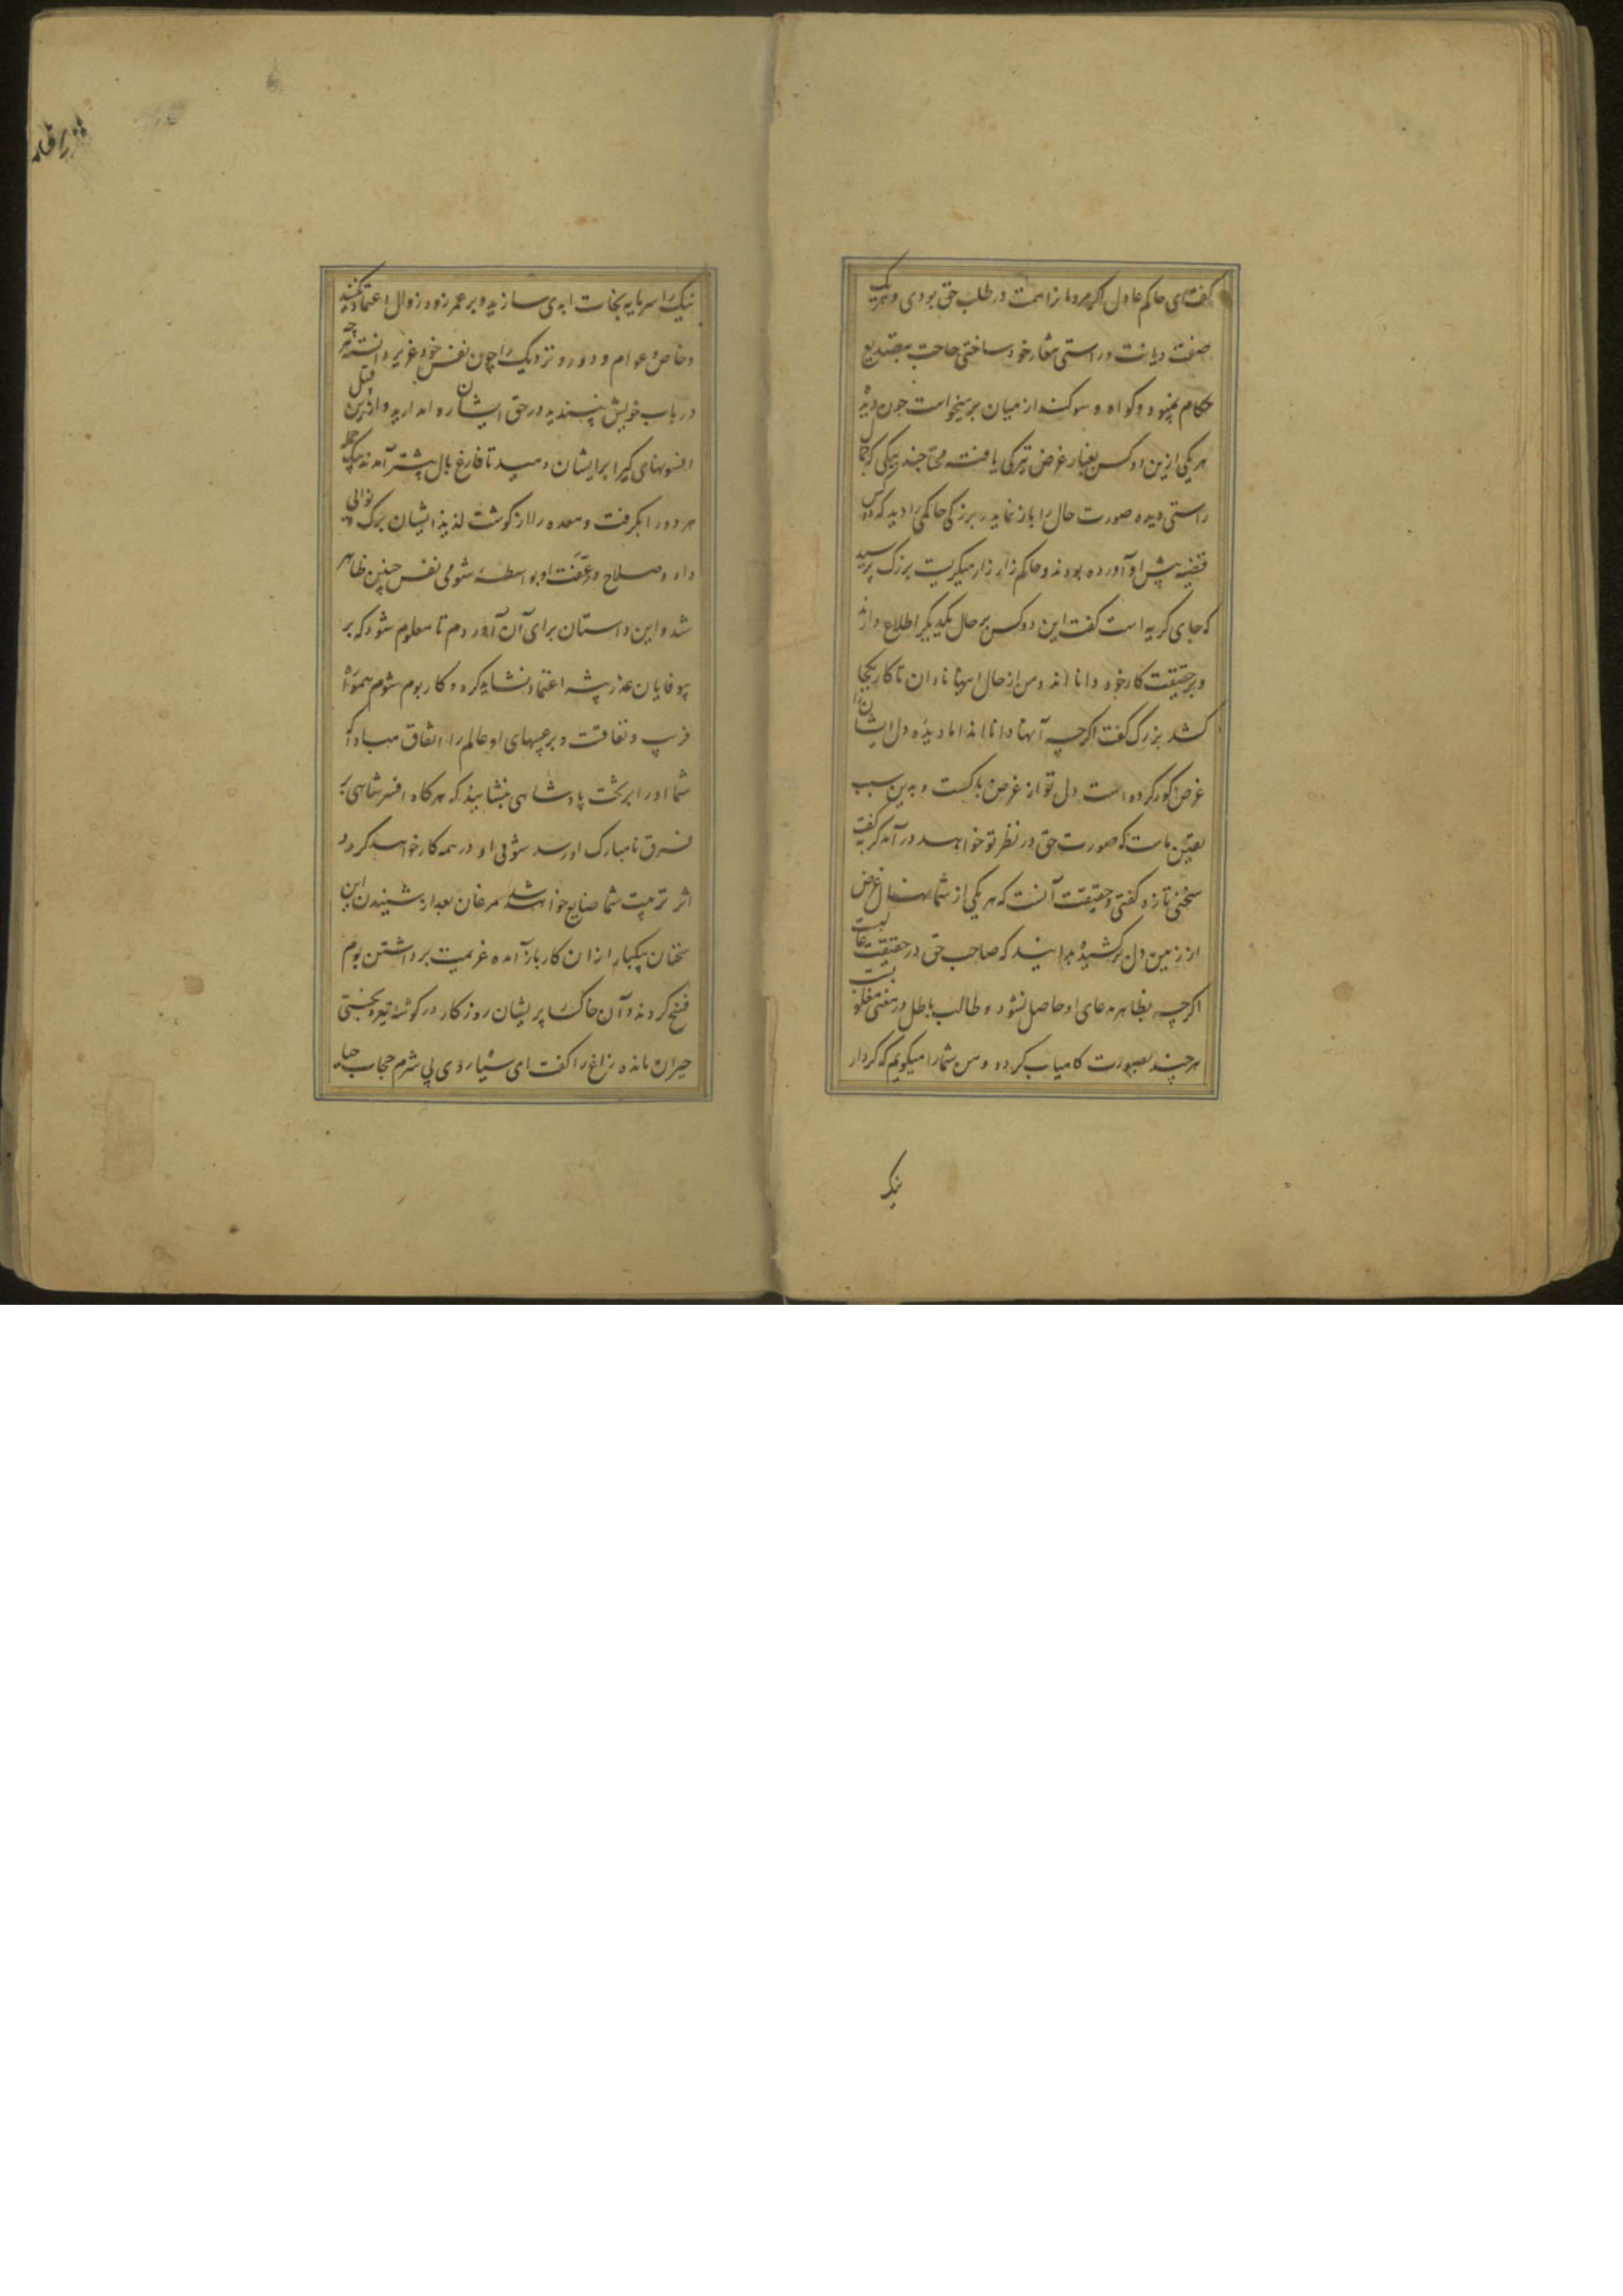 گفت ای حاکم عادل اگر مردمان را همت در طلب حق بودی و هر یک
صفت دیانت و راستی شعار خود ساختی حاجت بتصدیع
حکام نبود و گواه و سوکند از میان برمیخواست چون دیده
هر یکی ازین دو کس بغبار غرض تیرکی یافته محتاجند بیکی که جمال
راستی دیده صورت حال را باز نماید بزرکی حاکمی را دید که دو کس
قضیه پیش او آورده بودند و حاکم زار زار میکریست بزرک پرسید
که جای کریه است گفت این دو کس بر حال یکدیکر اطلاع دارند
و بر حقیقت کار خود دانا اند و من از حال اینها نادان تا کار بکجا
کشد بزرک گفت اگرچه آنها دانا اند اما دیده دل ایشان را
غرض کور کرده است دل تو از غرض پاکست و بدین سبب
یقین ماست که صورت حق در نظر تو خواهد در آمد کربه گفت
سخنی تازه گفتی و حقیقت آنست که هر یکی از شما نهال غرض
از زمین دل برکشیده بدانید که صاحب حق در حقیقت غالبست
اگرچه بظاهر مدعای او حاصل نشود و طالب باطل در معنی مغلوبست
هر چند بصورت کامیاب کردد و من شما را میگویم که کردار
نیک
نیک را سرمایه نجات ابدی سازید و بر عمر زود زوال اعتماد مکنید
و خاص و عوام و دور و نزدیک را چون نفس خود عزیز دانسته هر چه
در باب خویش نپسندید در حق ایشان روا مدارید و ازین قبیل
افسونهای گیرا بر ایشان دمید تا فارغ بال پیشتر آمدند بیک حمله
هر دو را بگرفت و معده را از کوشت لذیذ ایشان برک و نوائی
داد و صلاح و عفت او بواسطه شومی نفس چنین ظاهر
شد و این داستان برای آن آوردم تا معلوم شود که بر
بیوفایان غدر پیشه اعتماد نشاید کرد و کار بوم شوم همواره
فریب و نفاقت و بر عیبهای او عالم را اتفاق مبادا که
شما او را بر تخت پادشاهی بنشانید که هر کاه افسر شاهی بر
فرق نامبارک او رسد شومی او در همه کار خواهد کرد و
اثر تربیت شما ضایع خواهد شد مرغان بعد از شنیدن این
سخنان بیکبار از ان کار باز آمده عزیمت برداشتن بوم
فسخ کردند و آن خاکسار پریشان روزکار در گوشه تیره بختی
حیران مانده زاغ را گفت ای سیاه روی بی شرم حجاب حیا